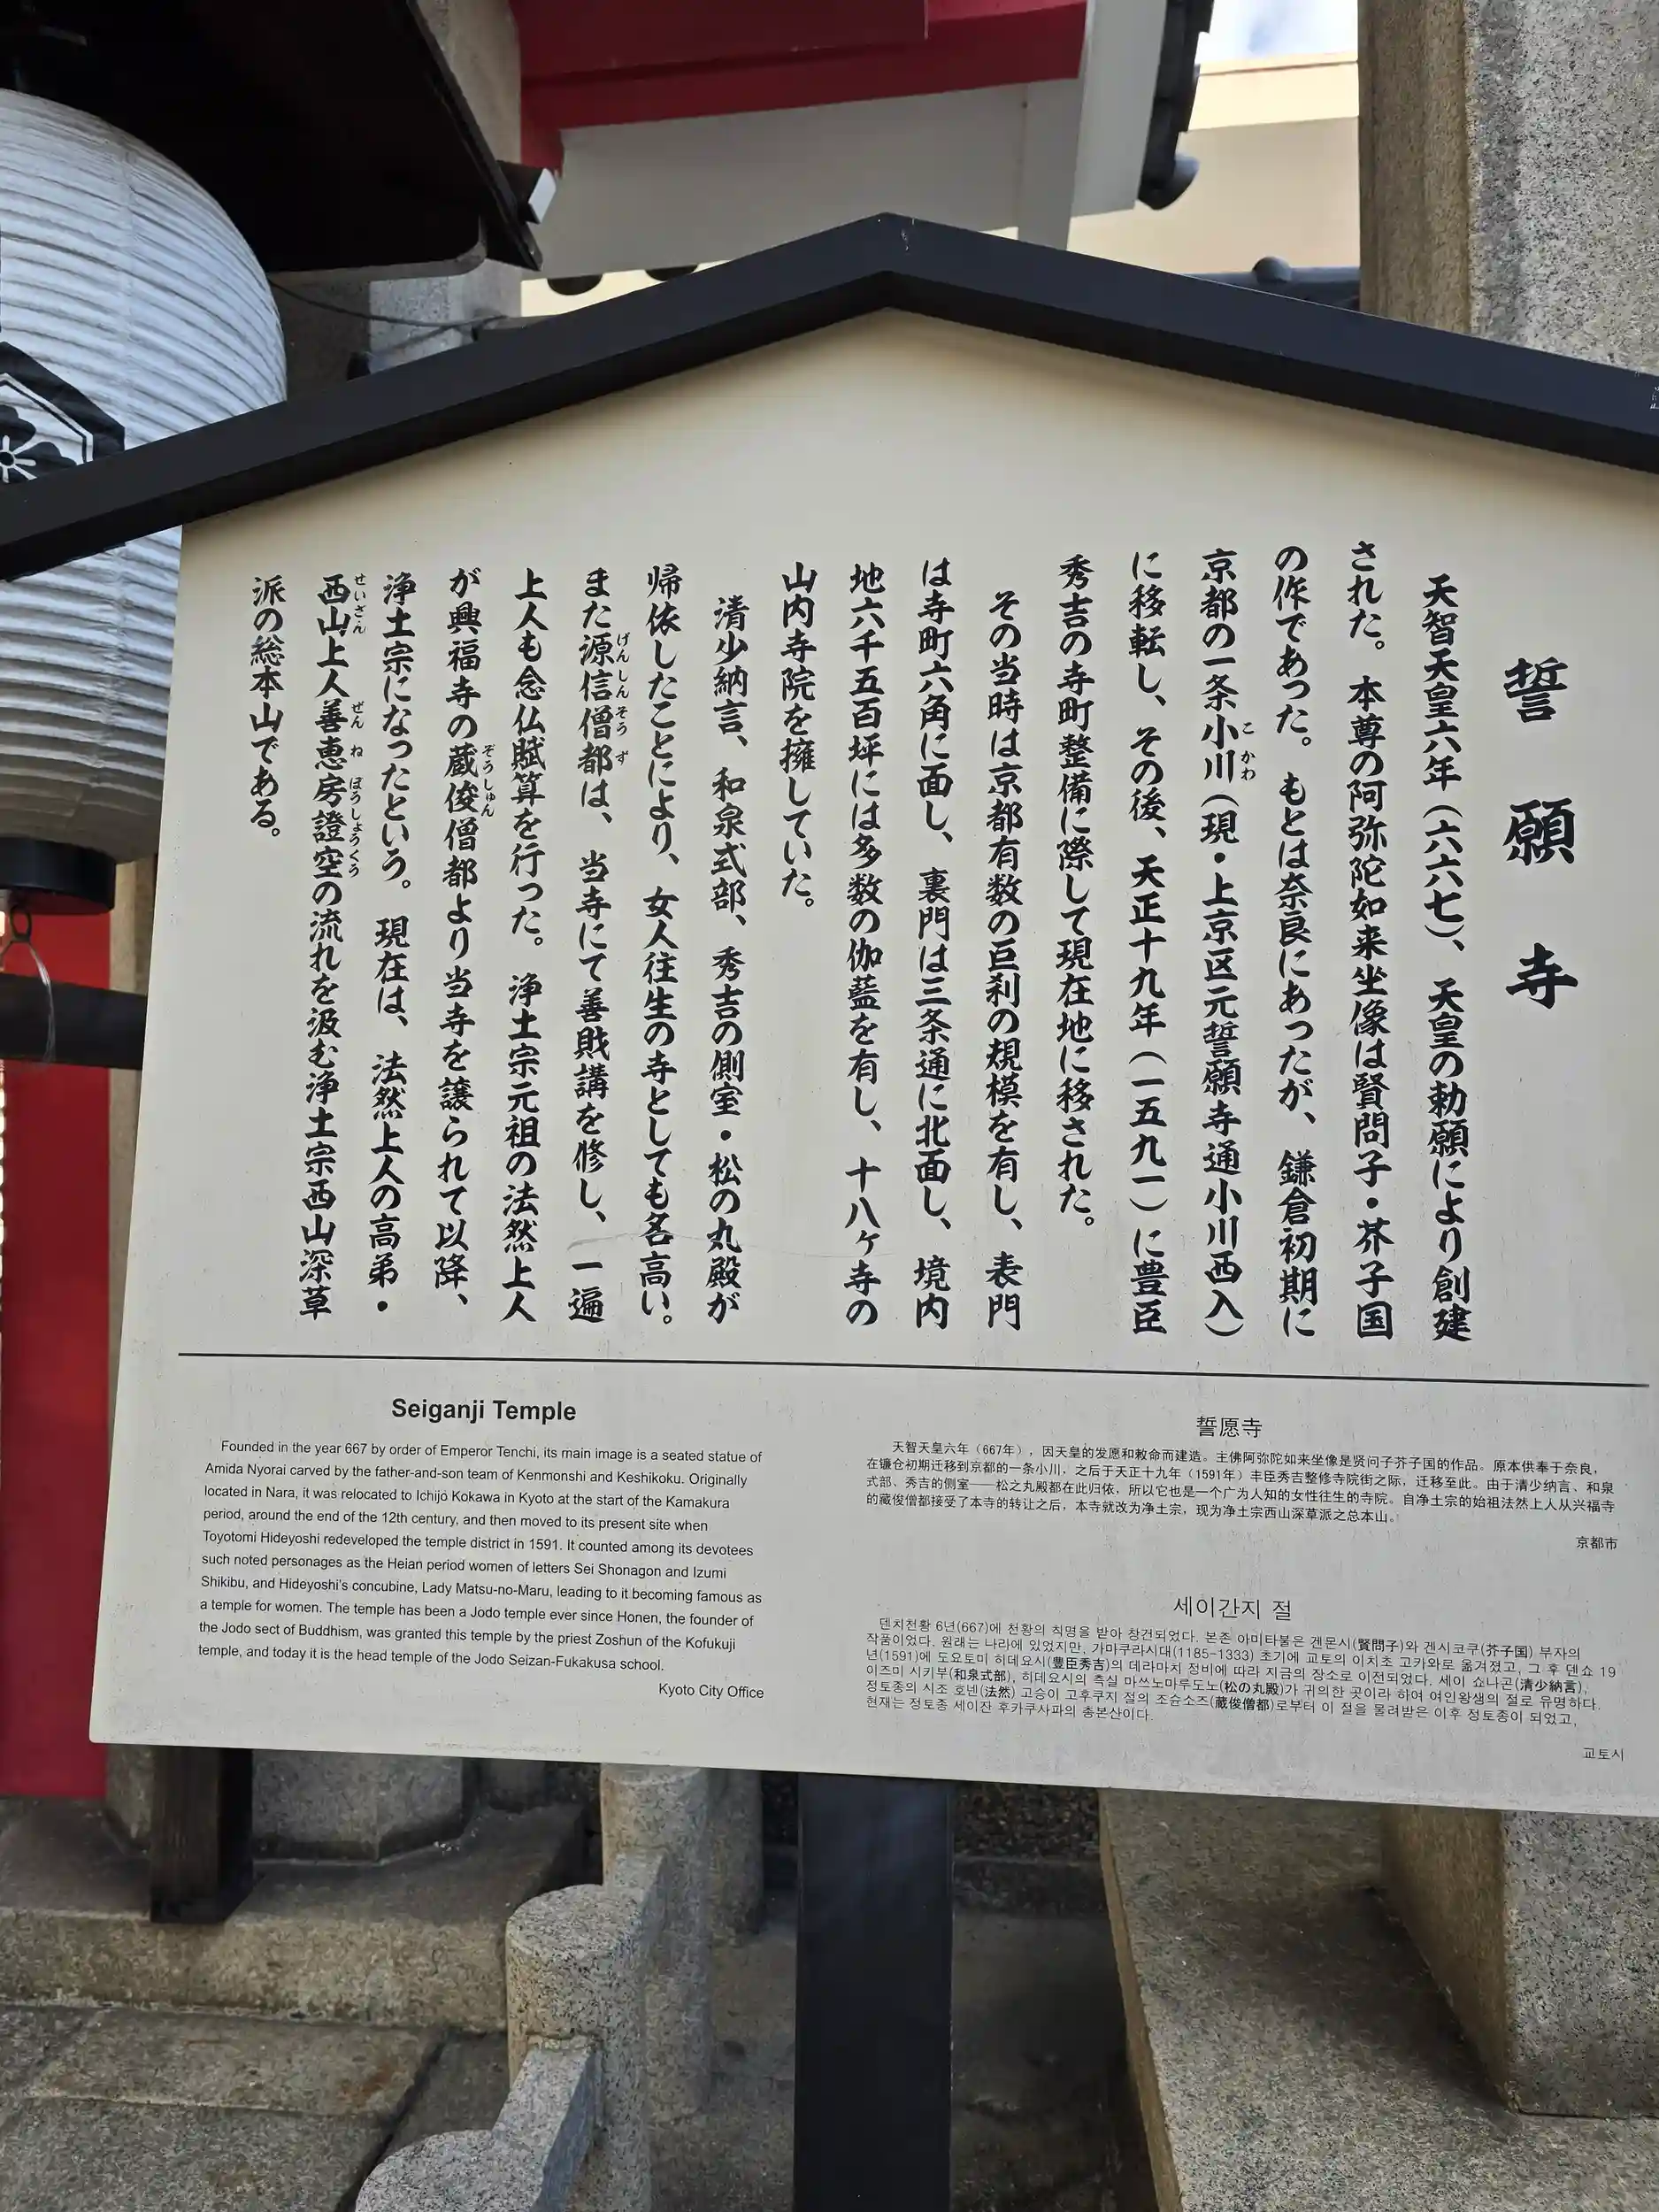 誓願寺
天智天皇六年（六六七）、天皇の勅願により創建
された。本尊の阿弥陀如来坐像は賢問子・芥子国
の作であった。もとは奈良にあったが、鎌倉初期に
京都の一条小川（現・上京区元誓願寺通小川西入）
こかわ
に移転し、その後、天正十九年（一五九一）に豊臣
秀吉の寺町整備に際して現在地に移された。
その当時は京都有数の巨刹の規模を有し、表門
は寺町六角に面し、裏門は三条通に北面し、境内
地六千五百坪には多数の伽藍を有し、十八ヶ寺の
山内寺院を擁していた。
清少納言、和泉式部、秀吉の側室・松の丸殿が
帰依したことにより、女人往生の寺としても名高い。
また源信僧都は、当寺にて善財講を修し、一遍
げんしんそうず
上人も念仏賦算を行った。浄土宗元祖の法然上人
が興福寺の蔵俊僧都より当寺を譲られて以降、
ぞうしゅん
浄土宗になったという。現在は、法然上人の高弟・
西山上人善恵房證空の流れを汲む浄土宗西山深草
せいざん ぜんねぼうしょうくう
派の総本山である。
Seiganji Temple
Founded in the year 667 by order of Emperor Tenchi, its main image is a seated statue of
Amida Nyorai carved by the father-and-son team of Kenmonshi and Keshikoku. Originally
located in Nara, it was relocated to Ichijo Kokawa in Kyoto at the start of the Kamakura
period, around the end of the 12th century, and then moved to its present site when
Toyotomi Hideyoshi redeveloped the temple district in 1591. It counted among its devotees
such noted personages as the Heian period women of letters Sei Shonagon and Izumi
Shikibu, and Hideyoshi's concubine, Lady Matsu-no-Maru, leading to it becoming famous as
a temple for women. The temple has been a Jodo temple ever since Honen, the founder of
the Jodo sect of Buddhism, was granted this temple by the priest Zoshun of the Kofukuji
temple, and today it is the head temple of the Jodo Seizan-Fukakusa school.
Kyoto City Office
誓愿寺
天智天皇六年（667年），因天皇的发愿和敕命而建造。主佛阿弥陀如来坐像是贤问子芥子国的作品。原本供奉于奈良，
在镰仓初期迁移到京都的一条小川，之后于天正十九年（1591年）丰臣秀吉整修寺院街之际，迁移至此。由于清少纳言、和泉
式部、秀吉的侧室——松之丸殿都在此归依，所以它也是一个广为人知的女性往生的寺院。自净土宗的始祖法然上人从兴福寺
的藏俊僧都接受了本寺的转让之后，本寺就改为净土宗，现为净土宗西山深草派之总本山。
京都市
세이간지 절
덴치천황 6년(667)에 천황의 칙명을 받아 창건되었다. 본존 아미타불은 겐몬시(賢問子)와 겐시코쿠(芥子国) 부자의
작품이었다. 원래는 나라에 있었지만, 가마쿠라시대(1185-1333) 초기에 교토의 이치초 고카와로 옮겨졌고, 그 후 덴쇼 19
년(1591)에 도요토미 히데요시(豊臣秀吉)의 데라마치 정비에 따라 지금의 장소로 이전되었다. 세이 쇼나곤(清少納言),
이즈미 시키부(和泉式部), 히데요시의 측실 마쓰노마루도노(松の丸殿)가 귀의한 곳이라 하여 여인왕생의 절로 유명하다.
정토종의 시조 호넨(法然) 고승이 고후쿠지 절의 조슌소즈(蔵俊僧都)로부터 이 절을 물려받은 이후 정토종이 되었고,
현재는 정토종 세이잔 후카쿠사파의 총본산이다.
교토시